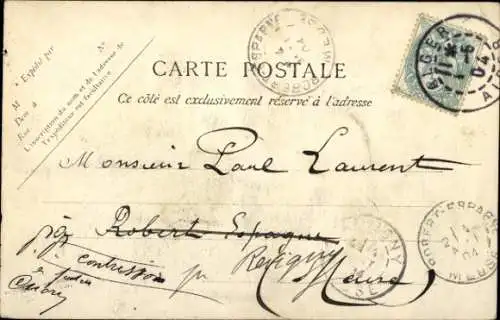 CARTE POSTALE
Ce côté est exclusivement réservé à l'adresse
N°
Expédié par
M
Dem à
Rue
L'inscription du nom et de l'adresse de
l'expéditeur est facultative
ALGER
04
ROBERT-ESPAGNE
MEUSE
Monsieur Paul Laurent
Robert Espagne
Revigny
Meuse
contrisson
ROBERT-ESPAGNE
04
MEUSE